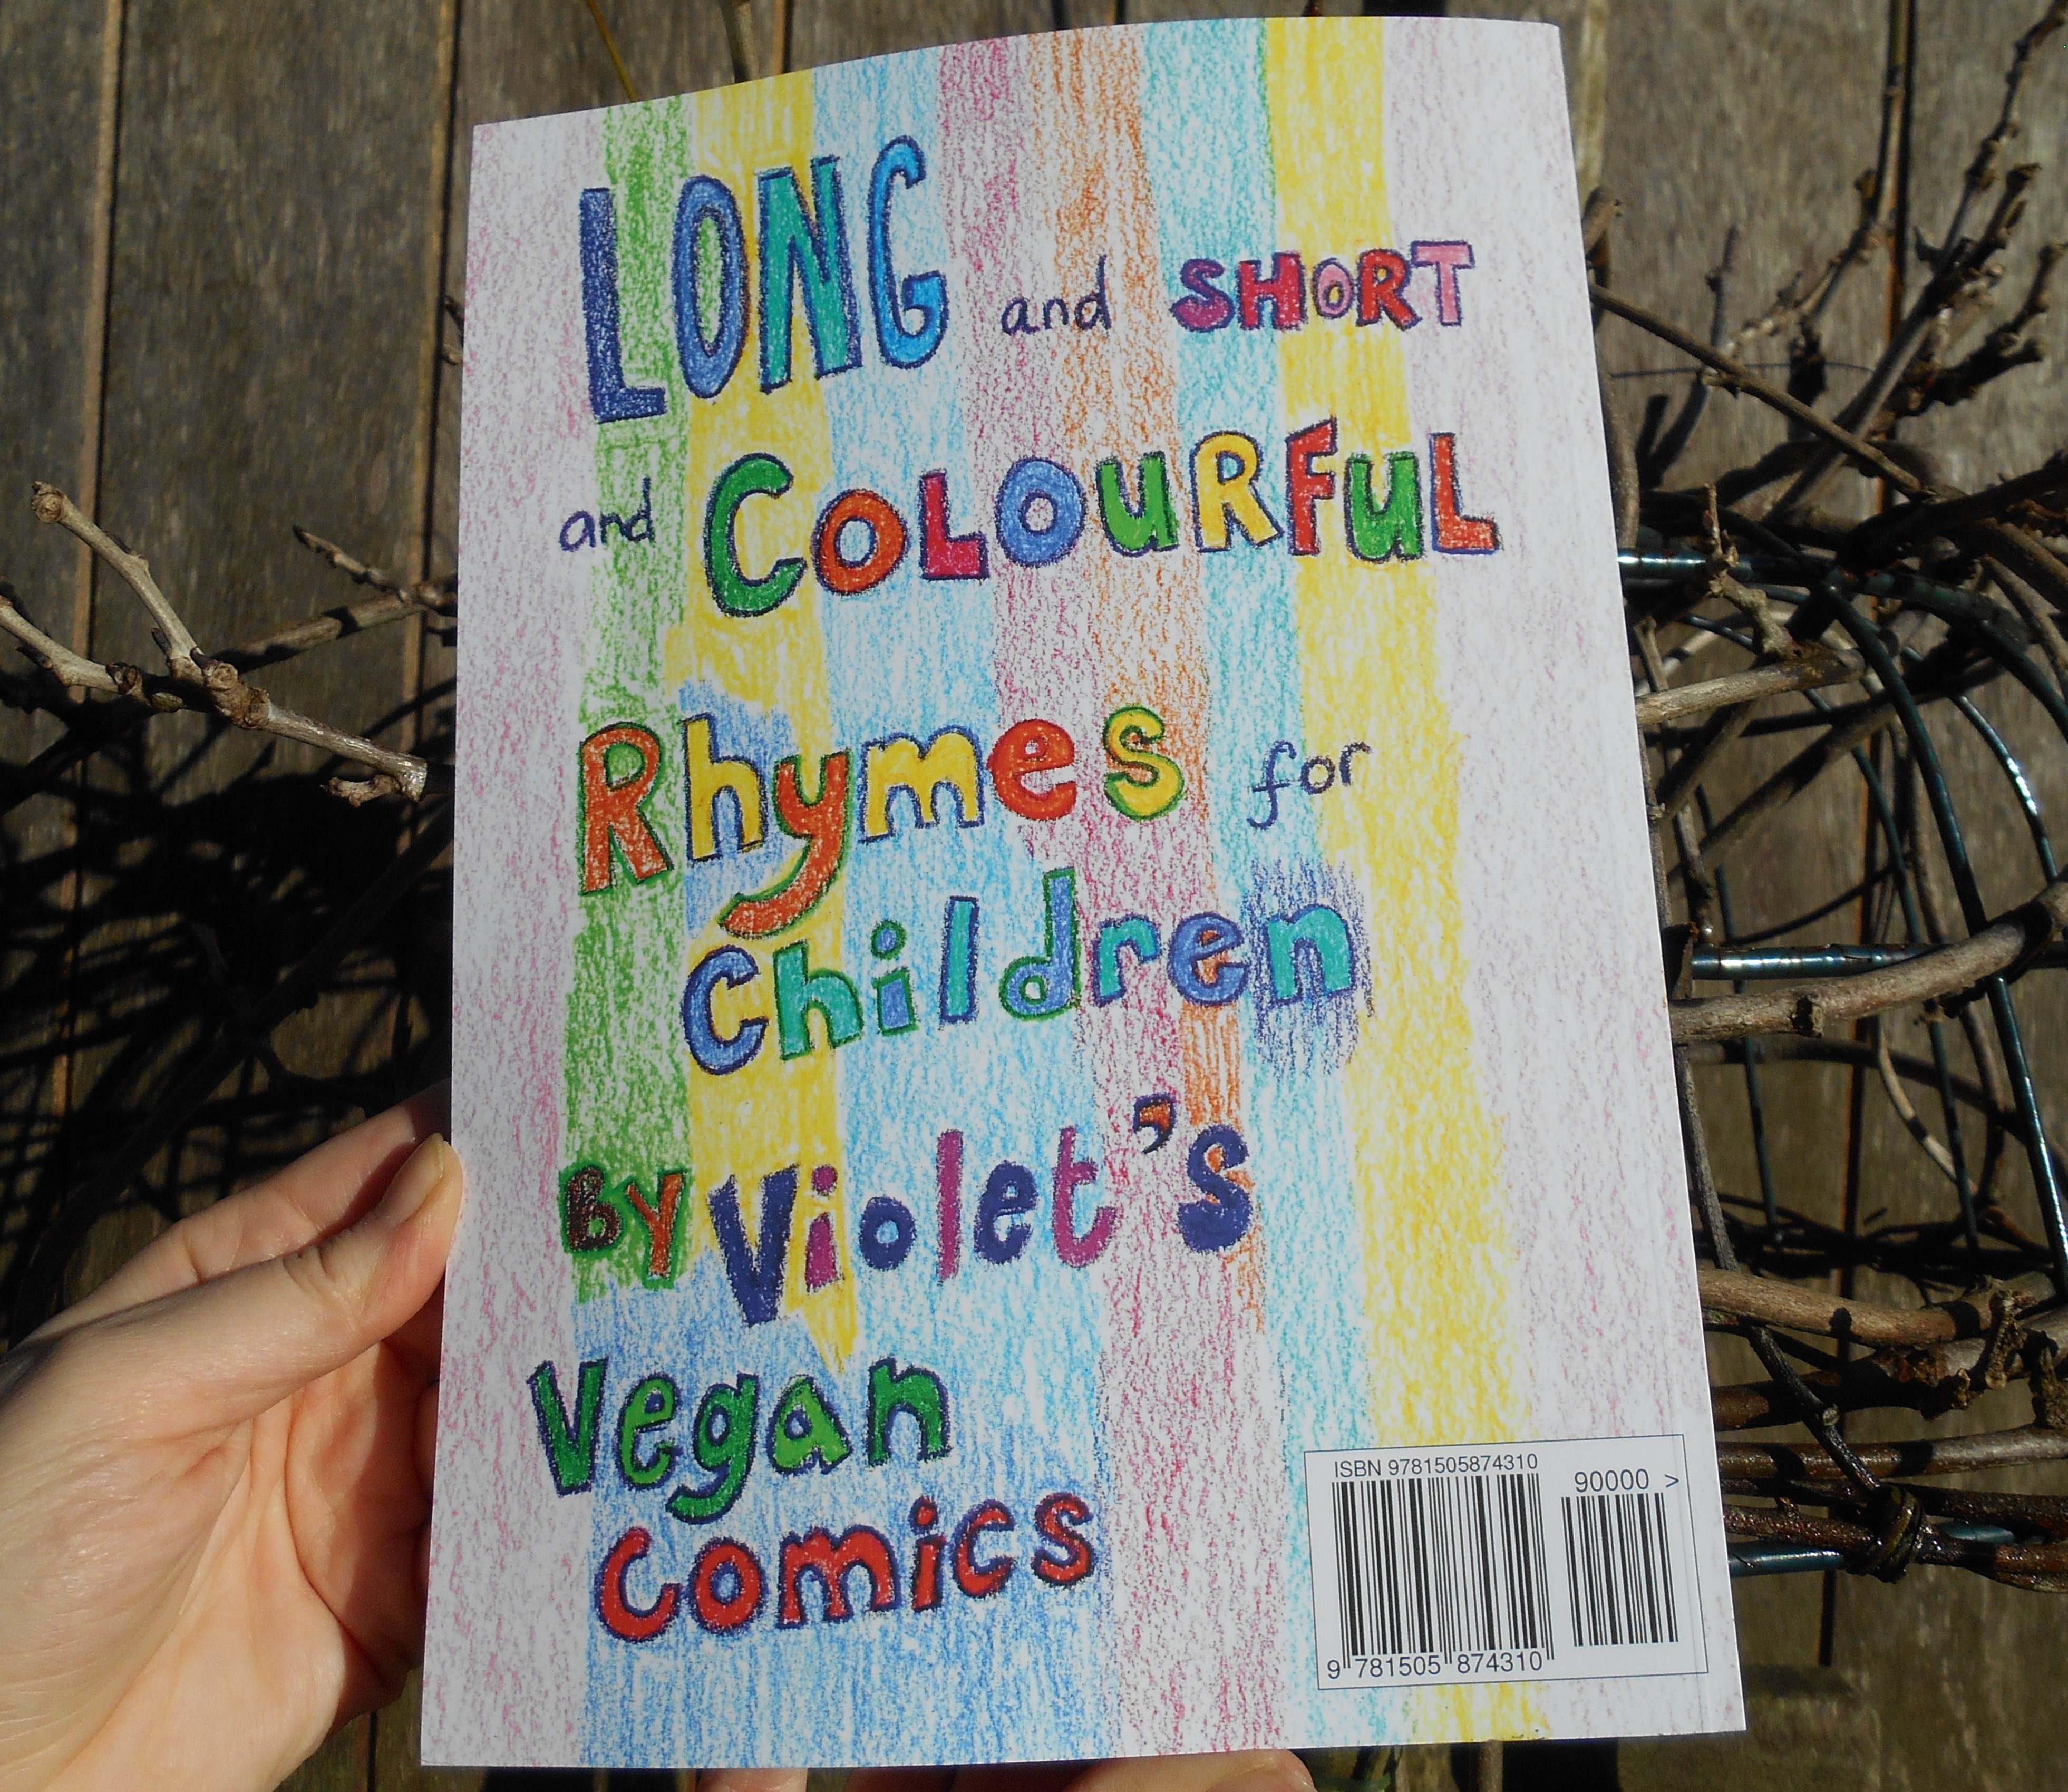 LONG and SHORT
and COLOURFUL
Rhymes for
Children
By Violet's
Vegan
Comics
ISBN 9781505874310
90000 >
9 781505 874310